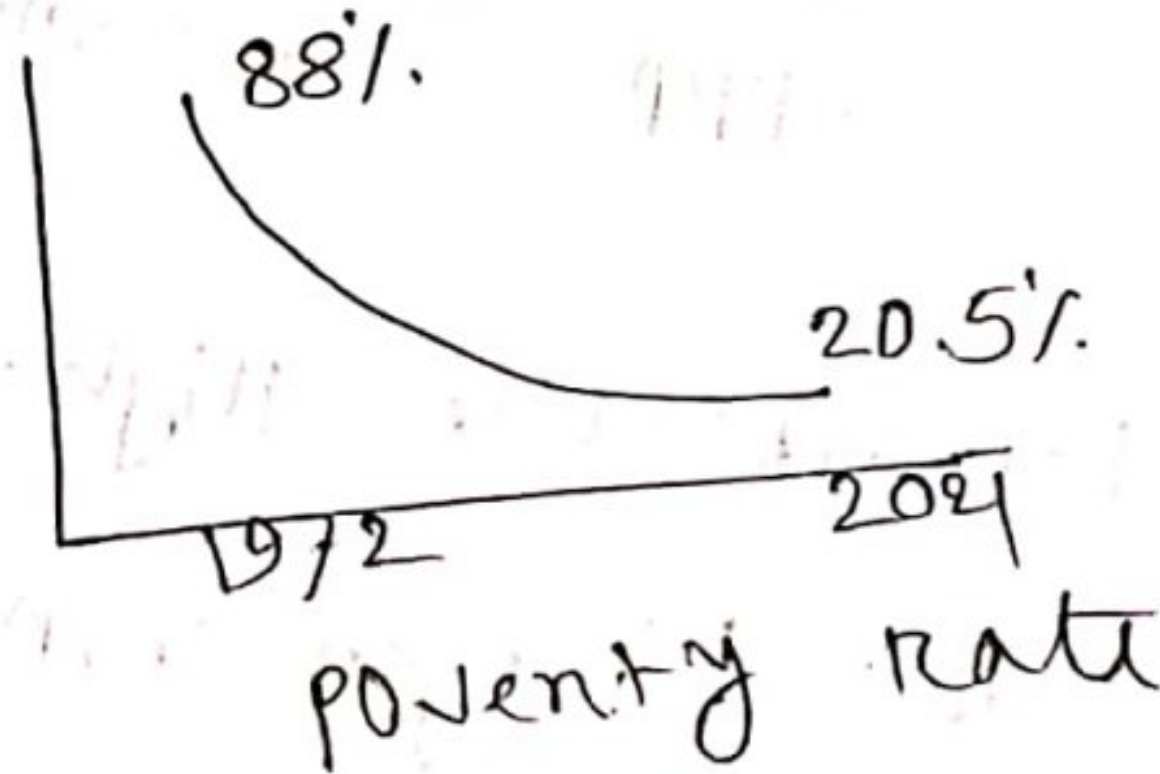 88%
20.5%
1972
2021
poverty rate